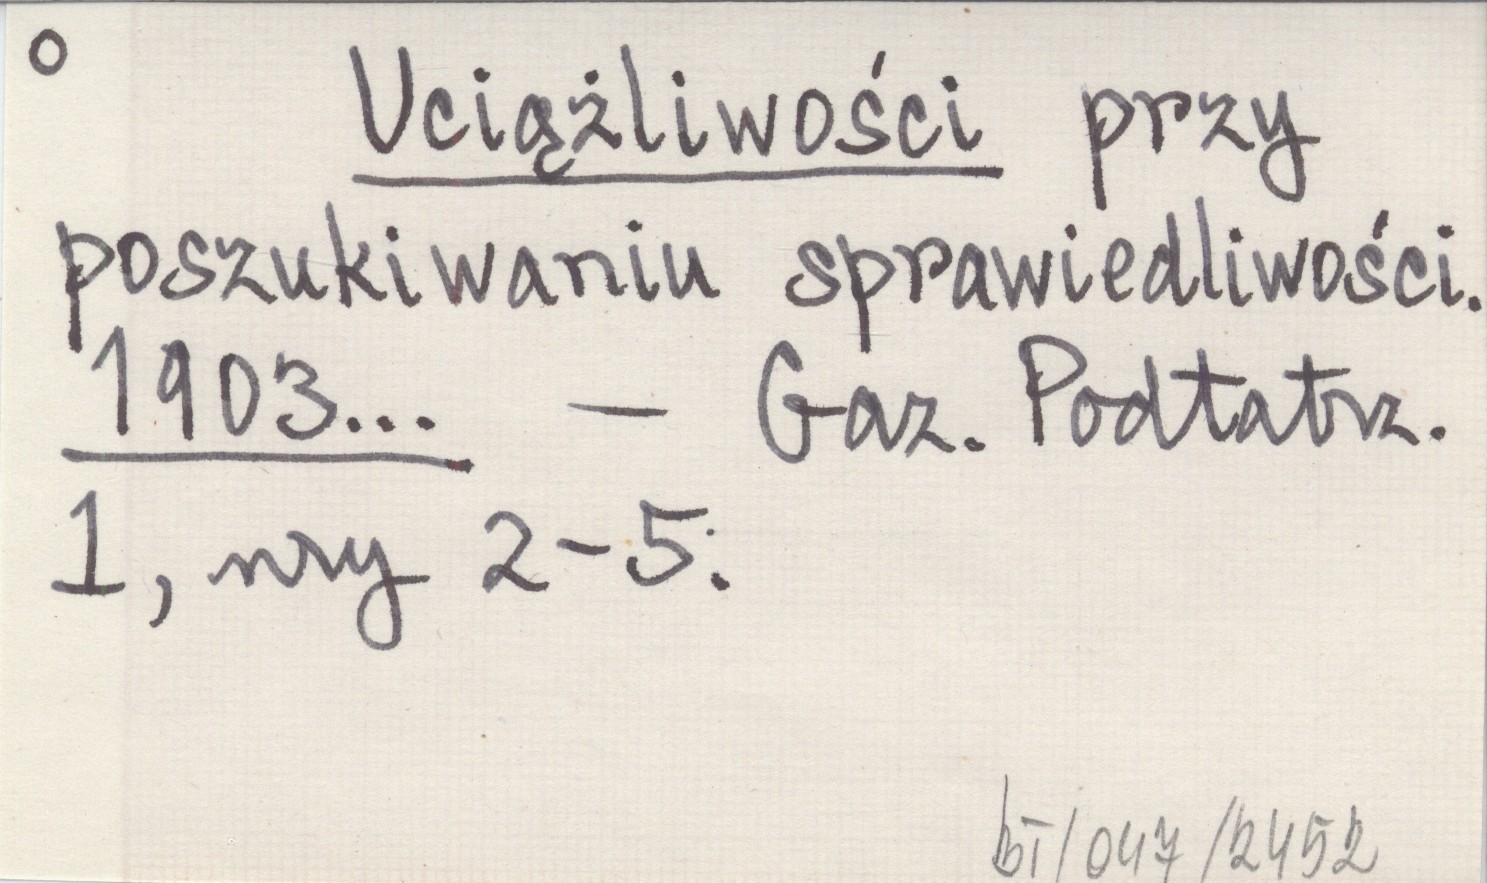 o
Uciążliwości przy
poszukiwaniu sprawiedliwości.
1903... — Gaz. Podtatrz.
1, nry 2-5.
bT/047/2452